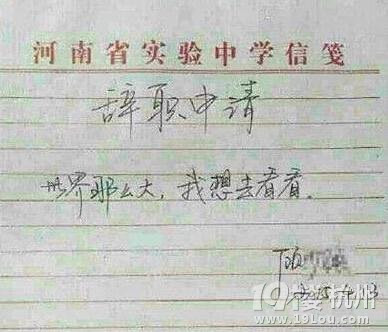 河南省实验中学信笺
辞职申请
世界那么大，我想去看看。
顾
2015.4.13
19楼杭州
www.19lou.com